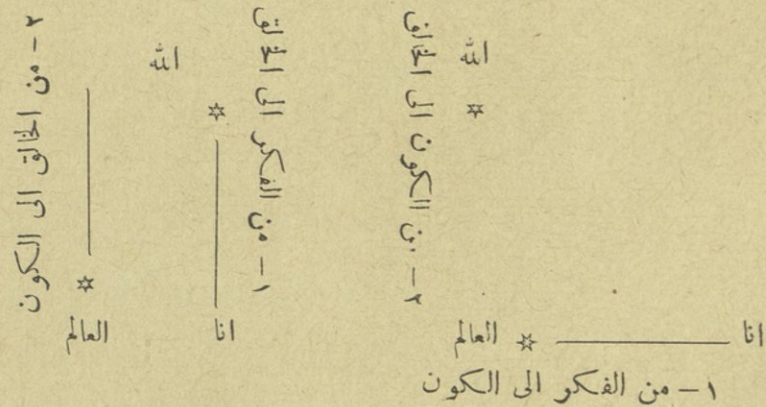 الله
٢ - من الكون الى الخالق
انا
العالم
١ - من الفكر الى الكون
الله
١ - من الفكر الى الخالق
انا
٢ - من الخالق الى الكون
العالم